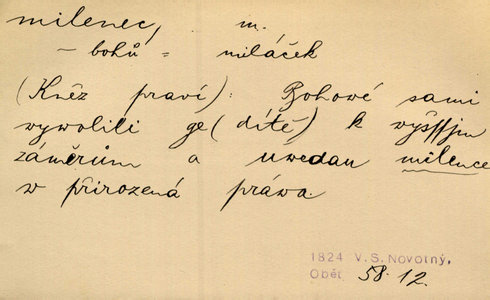 milenec, m.
– bohů = miláček
(Kněz praví): Bohové sami
wywolili ge (dítě) k wyšssjm
záměrům a uwedau milence
w přirozená práwa.
1824 V.S.Novotný,
Oběť 58.12.